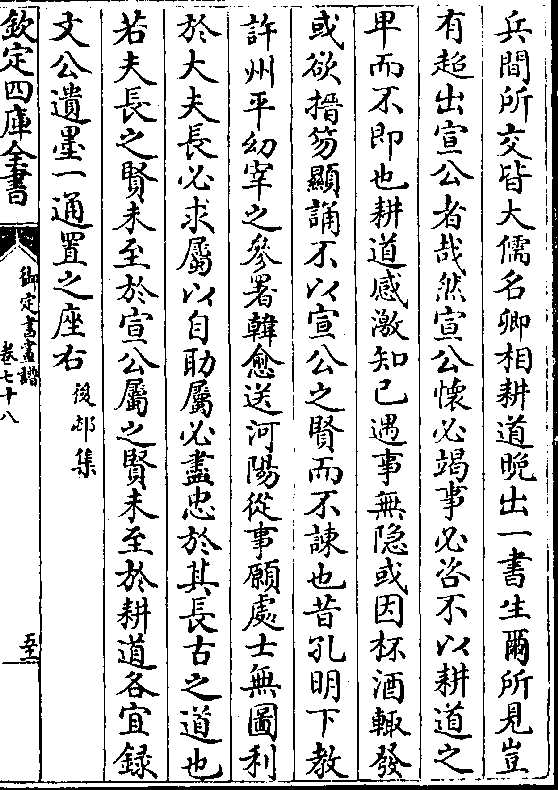 兵間所交皆大儒名卿相耕道晚出一書生爾所見豈
有超出宣公者哉然宣公懷必竭事必咨不以耕道之
卑而不即也耕道感激知己遇事無隐或因杯酒輙發
或欲搢笏顯誦不以宣公之賢而不諫也昔孔明下教
許州平幼宰之參署韓愈送河陽從事願處士無圖利
於大夫長必求屬以自助屬必盡忠於其長古之道也
若夫長之賢未至於宣公屬之賢未至於耕道各宜錄
文公遺墨一通置之座右 後邨集
欽定四庫全書
御定書畫譜
卷七十八